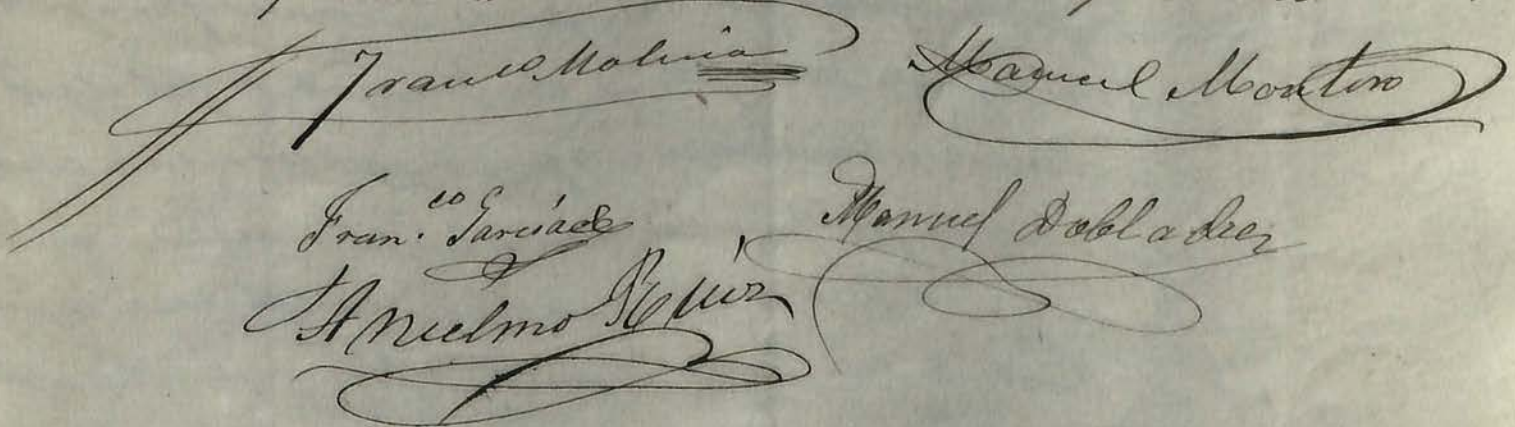 Franco Molina Manuel Montero
Fran.co García Manuel Dobladez
Anselmo Ruiz